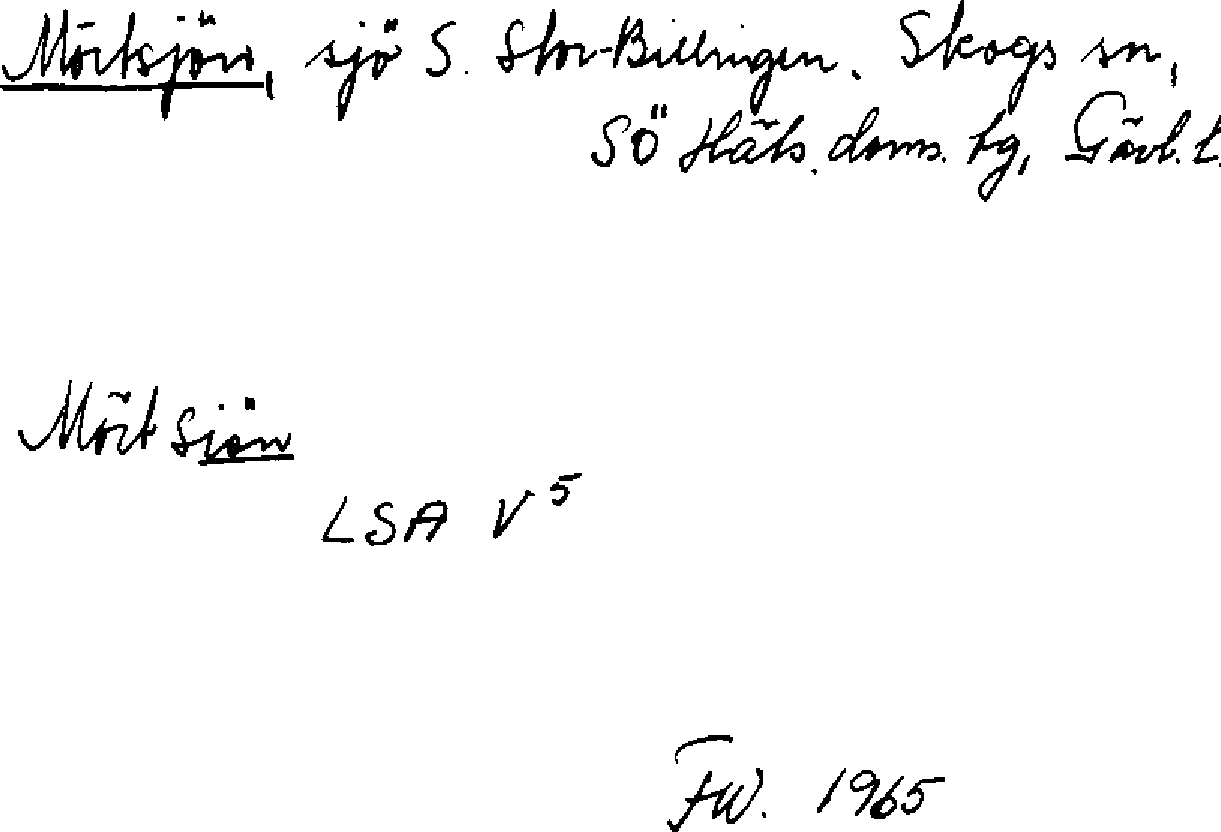 Mörtsjön, sjö S. Stor-Billingen. Skogs sn,
SÖ Häls. doms. tg, Gävl. l.
Mört Sjön
LSA V5
FW. 1965